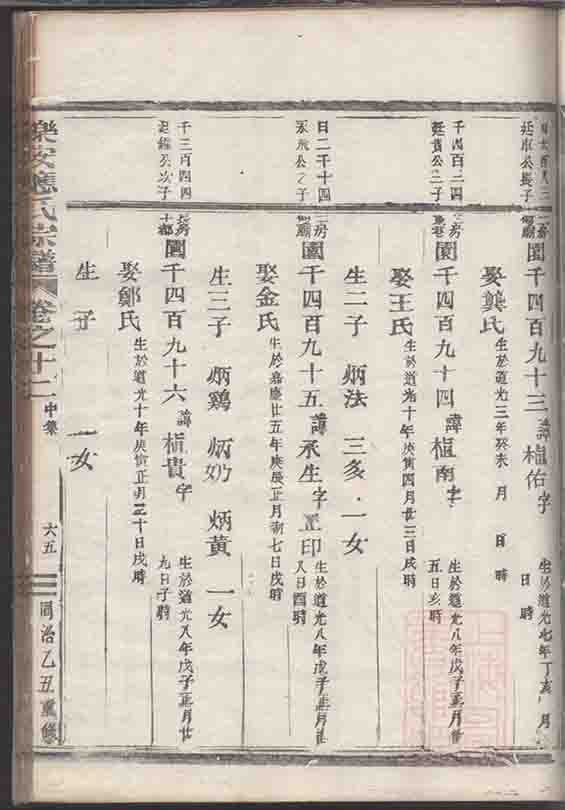 廷
公長子
園千四百九十三 諱 佑 字
生於道光七年丁亥 月
日 時
娶龔氏 生於道光三年癸未 月 日 時
千四百二四
廷貴公三子
房
園千四百九十四 諱 南 字
生於道光八年戊子正月廿
五日亥時
娶王氏 生於道光十年庚寅四月廿三日戌時
生二子 炳法 三多 一女
日二千十四
公之子
房
園千四百九十五 諱承生字正印
生於道光八年戊子正月廿
八日酉時
娶金氏 生於嘉慶廿五年庚辰正月初七日戌時
生三子 炳鷄 炳奶 炳黃 一女
千三百四四
公次子
房
十都
園千四百九十六 諱 貴字
生於道光八年戊子正月廿
九日子時
娶鄭氏 生於道光十年庚寅正月三十日戌時
生 子 一女
樂安應氏宗譜 卷之十二 中集 六五 同治乙丑重修